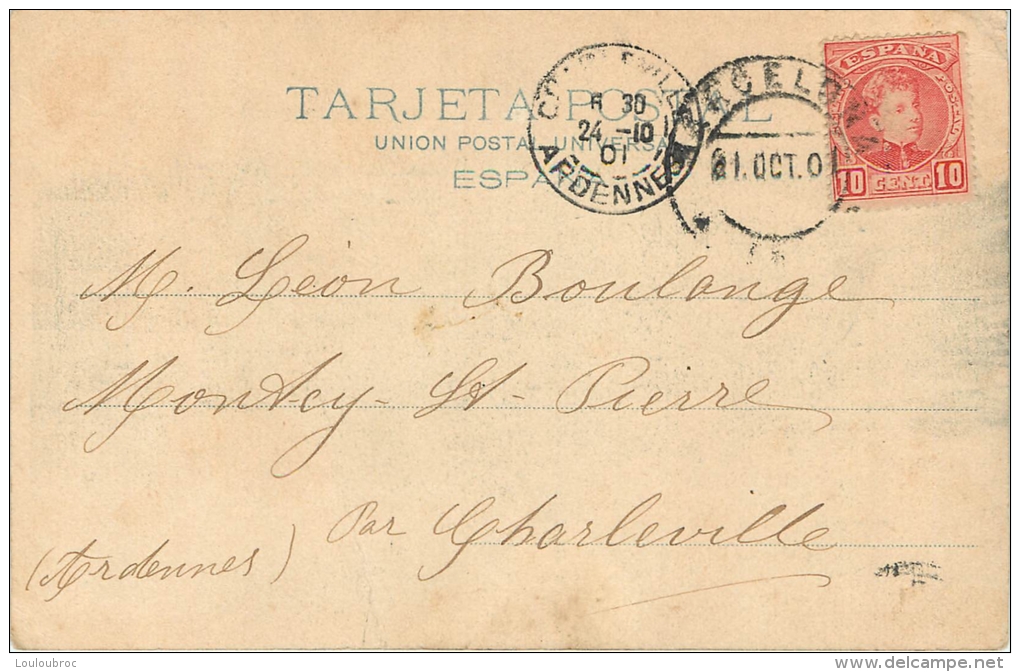 TARJETA POSTAL
UNION POSTAL UNIVERSAL
ESPAÑA
CHARLEVILLE
6 30
24 -10
01
ARDENNES
BARCELONA
21.OCT.01
ESPAÑA
POSTAL
10 CENT 10
M. Léon Boulange
Montcy-St-Pierre
par Charleville
(Ardennes)
Louloubroc
www.delcampe.net